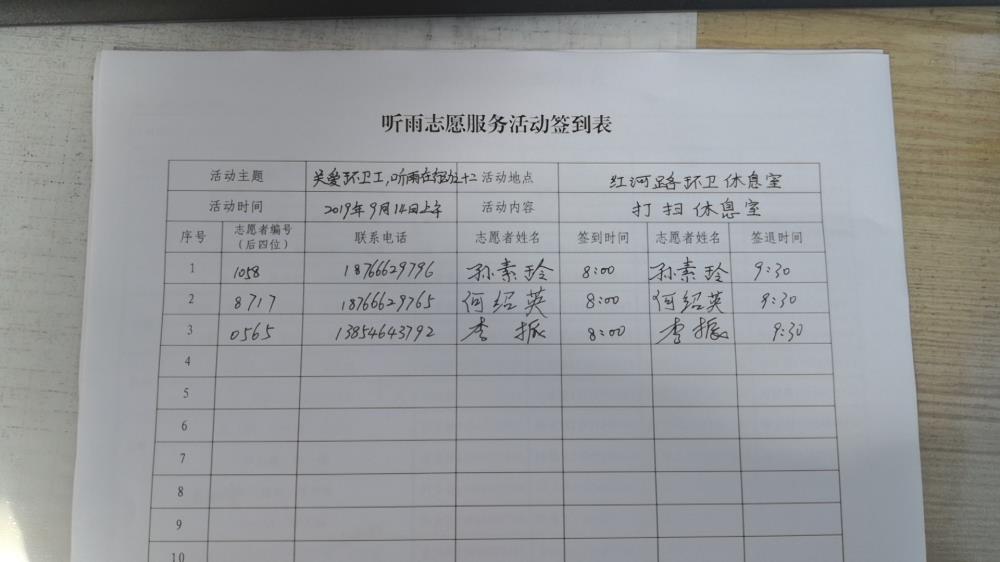 听雨志愿服务活动签到表
活动主题 关爱环卫工,听雨在行动之十二 活动地点 红河路环卫休息室
活动时间 2019年9月14日上午 活动内容 打扫休息室
序号 志愿者编号(后四位) 联系电话 志愿者姓名 签到时间 志愿者姓名 签退时间
1 1058 18766629796 孙素玲 8:00 孙素玲 9:30
2 8717 18766629765 何绍英 8:00 何绍英 9:30
3 0565 13854643792 李振 8:00 李振 9:30
4
5
6
7
8
9
10